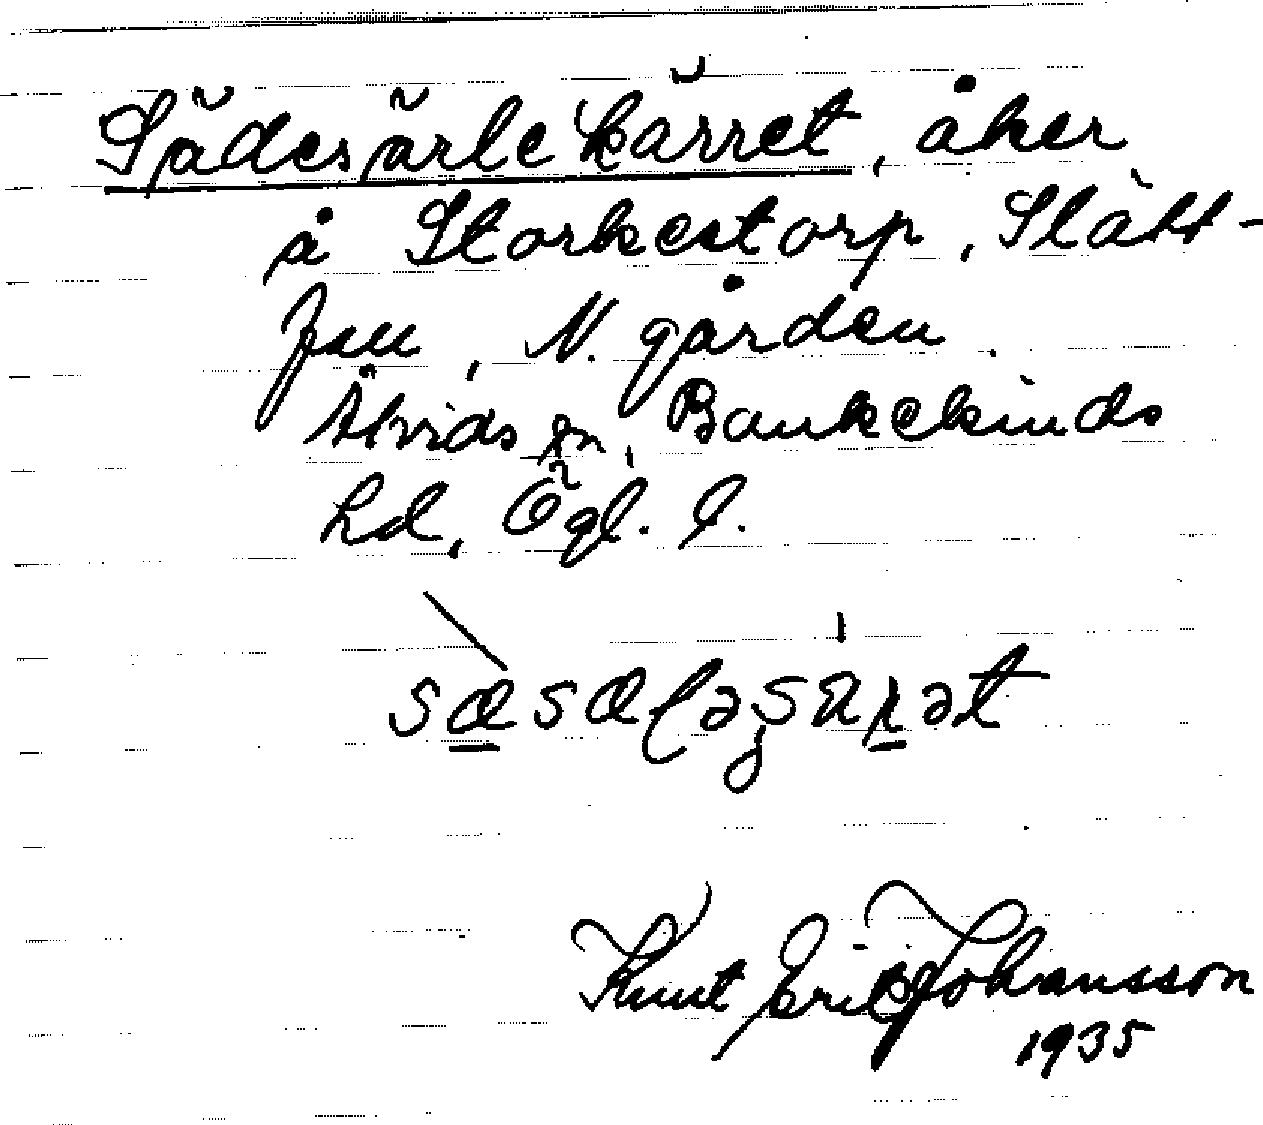 Sädesärlekärret, åker
å Storkestorp, Slätt-
fall, N. gården.
Älvids sn, Bankekinds
hd, Ögl. l.
Knut Erik Johansson
1935